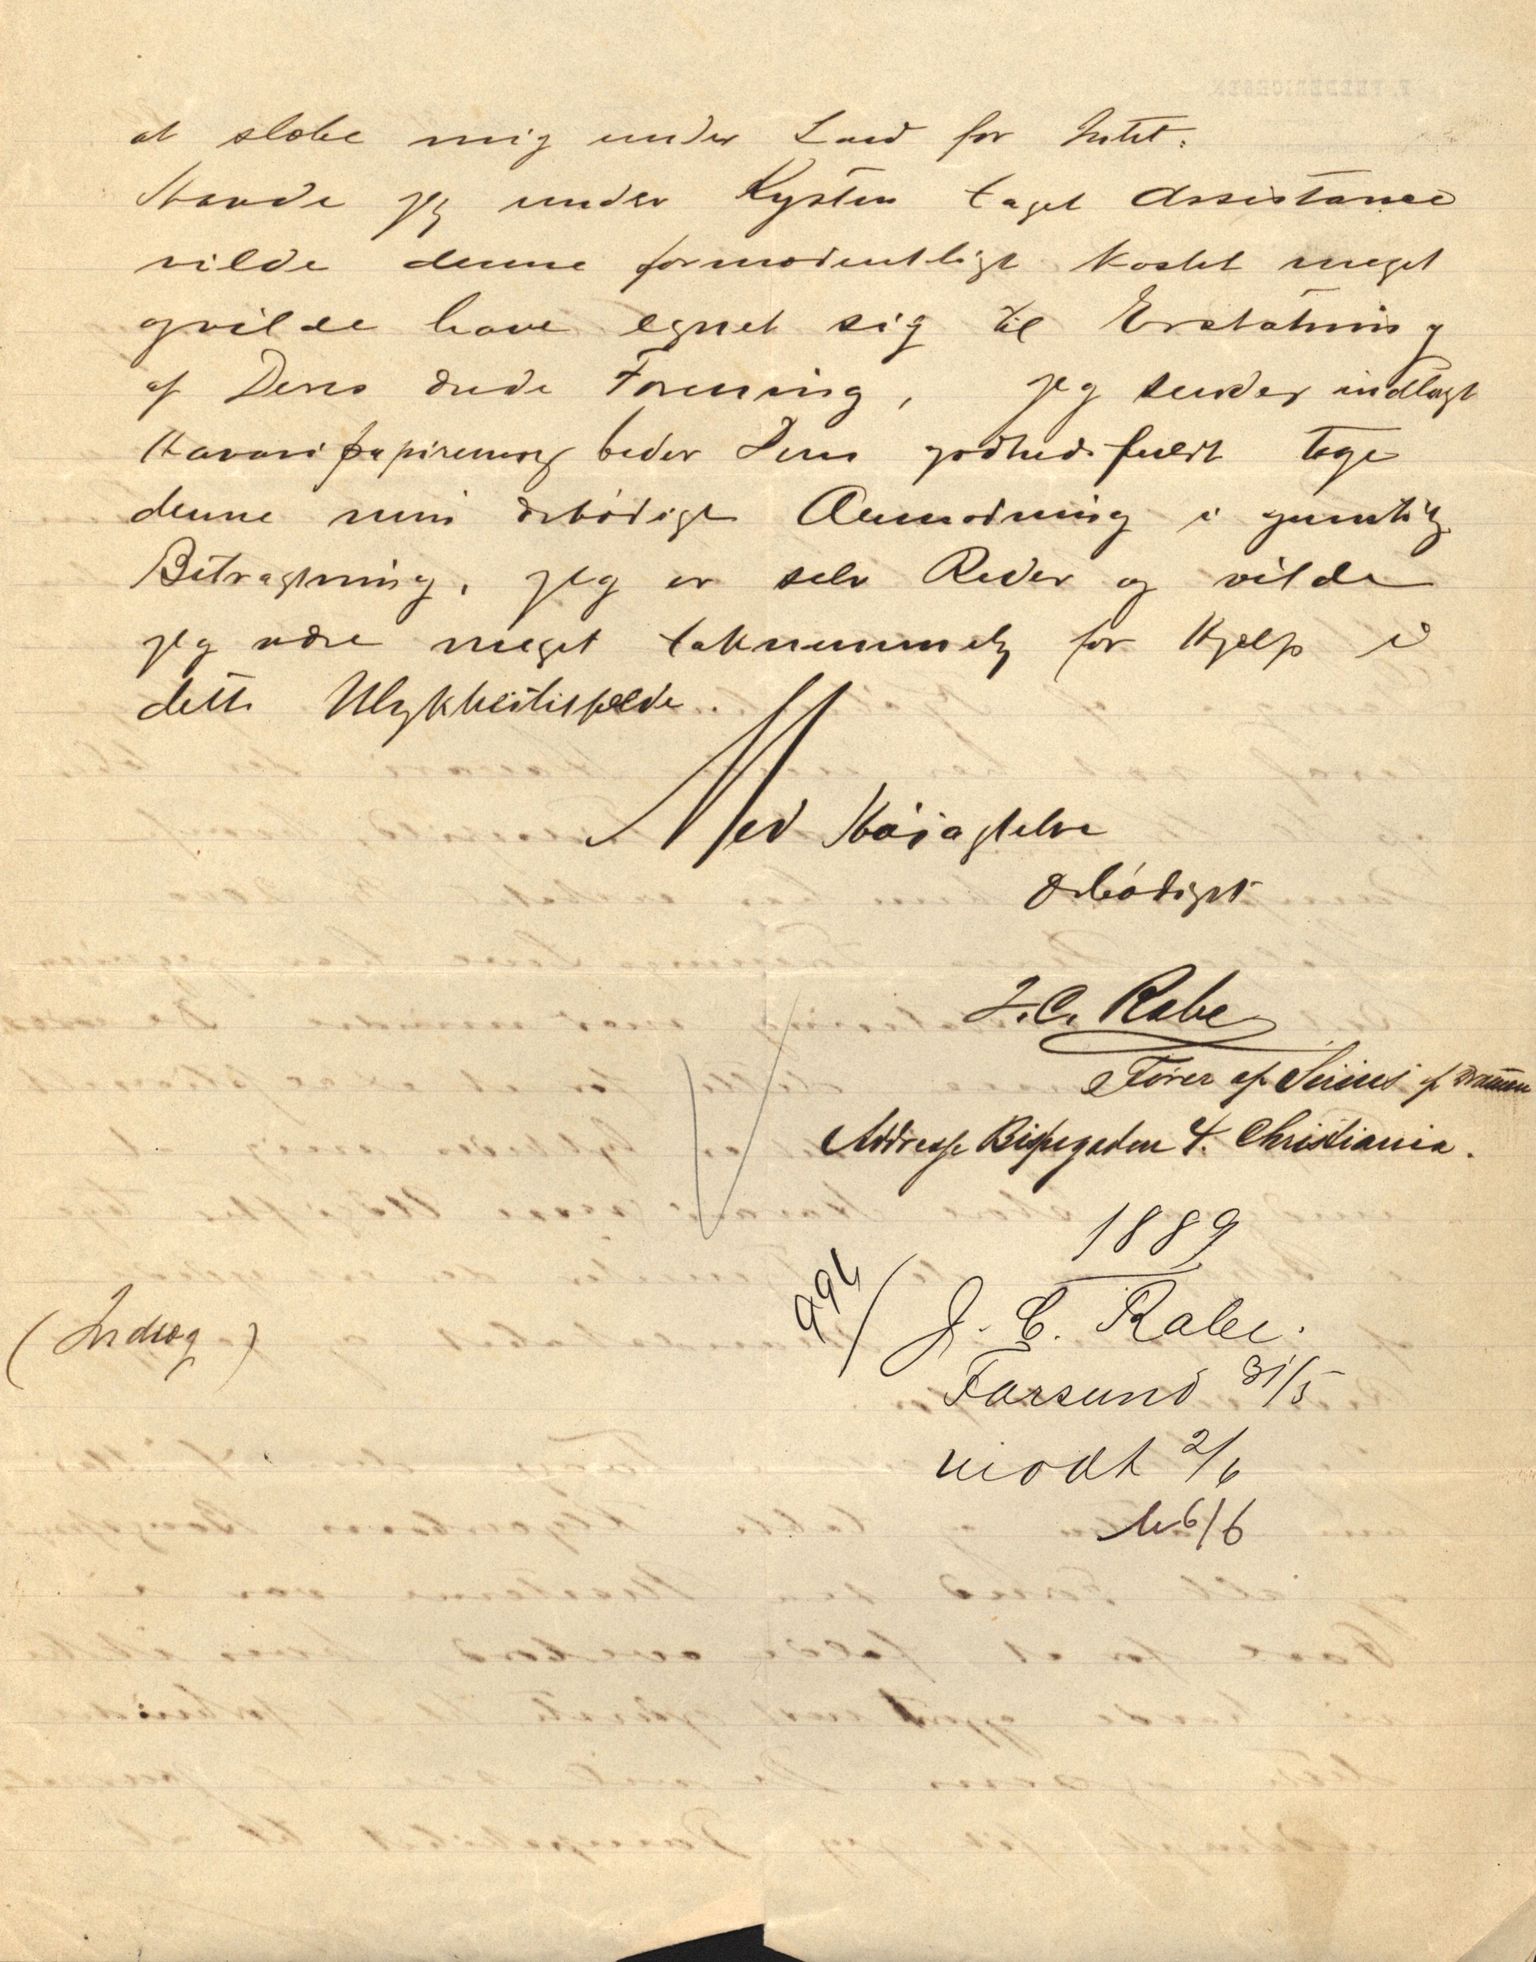 at slæbe mig under Land for Intet.
Havde jeg under Kysten taget Assistance
vilde denne formodentligt kostet meget
og vilde have egnet sig til Erstatning
af Deres ærede Forening, jeg sender indlagt
Havaripapirerne og beder Dem godhedsfuldt tage
denne min ærbødige Anmodning i gunstig
Betragtning, jeg er selv Reder og vilde
jeg være meget taknemmelig for Hjælp i
dette Ulykkestilfælde.
Med Høiagtelse
ærbødigst
J. C. Rabe
Fører af Sirius af Drammen
Addresse Bispegaden 4. Christiania.
1889
994 / J. C. Rabe.
Farsund 31/5
modt 2/6
b 6/6
(Indlæg)